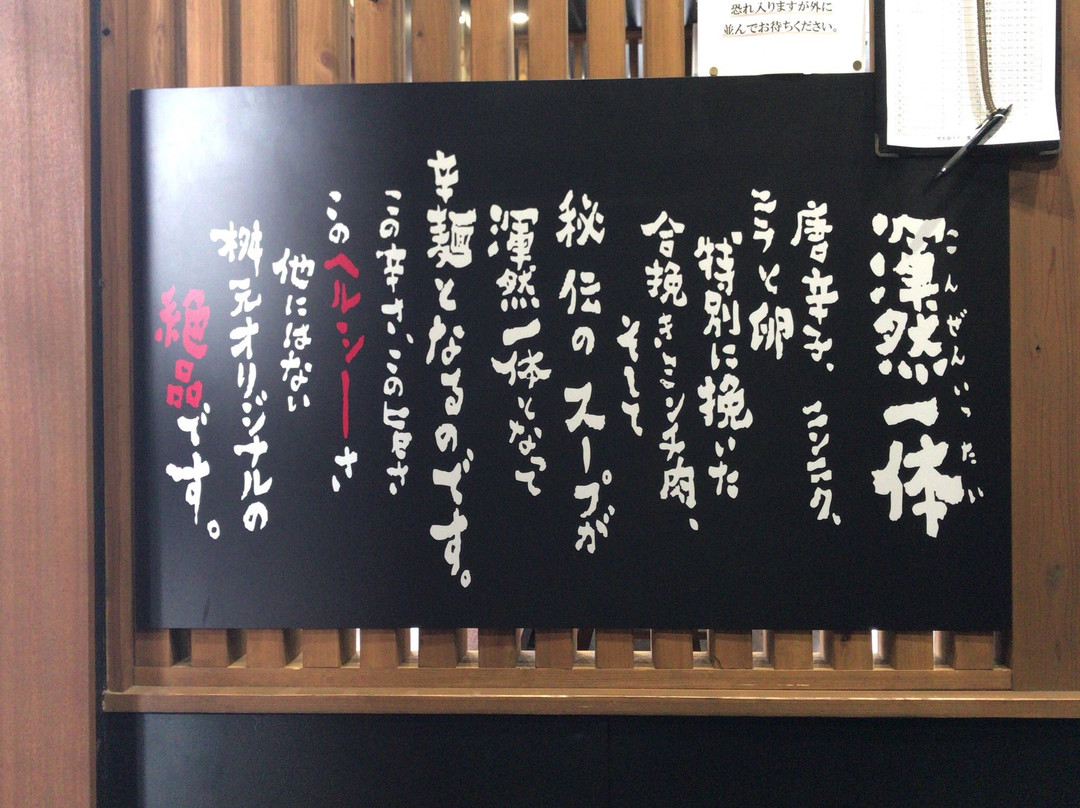 恐れ入りますが外に
並んでお待ちください。
渾然一体
こんぜんいったい
唐辛子、ニンニク、
ニラと卵
特別に挽いた
合挽きミンチ肉、
そして
秘伝のスープが
渾然一体となって
辛麺となるのです。
この辛さ、この旨さ
このヘルシーさ
他にはない
桝元オリジナルの
絶品です。